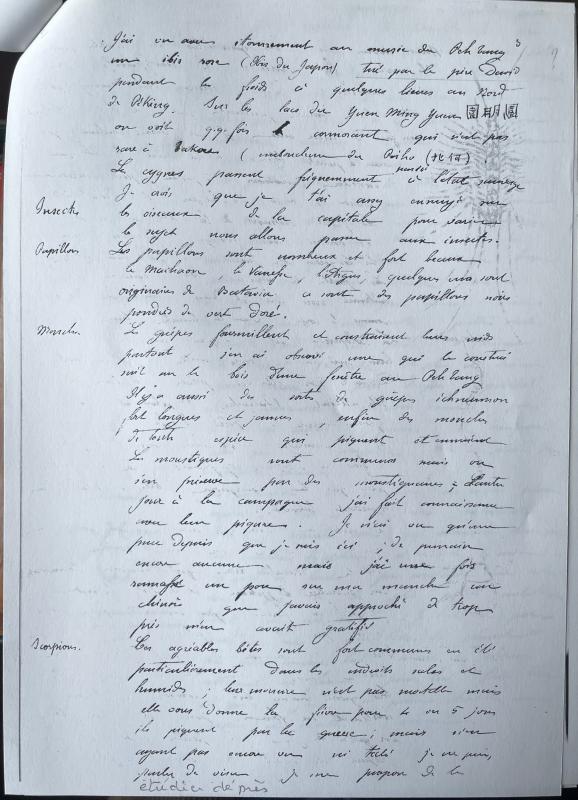 J'ai vu avec étonnement au musée du Peh tang 3
un ibis rose (Ibis du Japon) tué par le père David
pendant les froids à quelques lieues au Nord
de Péking. Sur les lacs du Yuen Ming Yuen 圓明園
on voit qqfois le cormorant qui n'est pas
rare à Takou (embouchure du Peiho (北河)
Les cygnes passent fréquemment aussi à l'état sauvage
Je crois que je t'ai assez ennuyé sur
Insectes les oiseaux de la capitale pour varier
le sujet nous allons passer aux insectes.
Papillons Les papillons sont nombreux et fort beaux
le Machaon, le Vanesse, l'Argus, quelques uns sont
originaires de Batavia ce sont des papillons noirs
poudrés de vert doré.
Mouches Les guêpes fourmillent et construisent leurs nids
partout, j'en ai observé une qui le construi
sait sur le bois d'une fenêtre au Peh tang
Il y a aussi des sortes de guêpes ichneumon
fort longues et jaunes, enfin des mouches
de toute espèce qui piquent et
Les moustiques sont communs mais on
s'en préserve par des moustiquaires; L'autre
jour à la campagne j'ai fait connaissance
avec leur piqure. Je n'ai vu qu'une
puce depuis que je suis ici; de punaise
encore aucune mais j'ai une fois
ramassé un pou sur ma manche un
chinois que j'avais approché de trop
près m'en avait gratifié
Scorpions. Ces agréables bêtes sont fort communes en été
particulièrement dans les endroits sales et
humides; leur morsure n'est pas mortelle mais
elle vous donne la fièvre pour 4 ou 5 jours
ils piquent par la queue; mais n'en
ayant pas encore vu ni tâté je ne puis
parler de visu je me propose de les
étudier de près